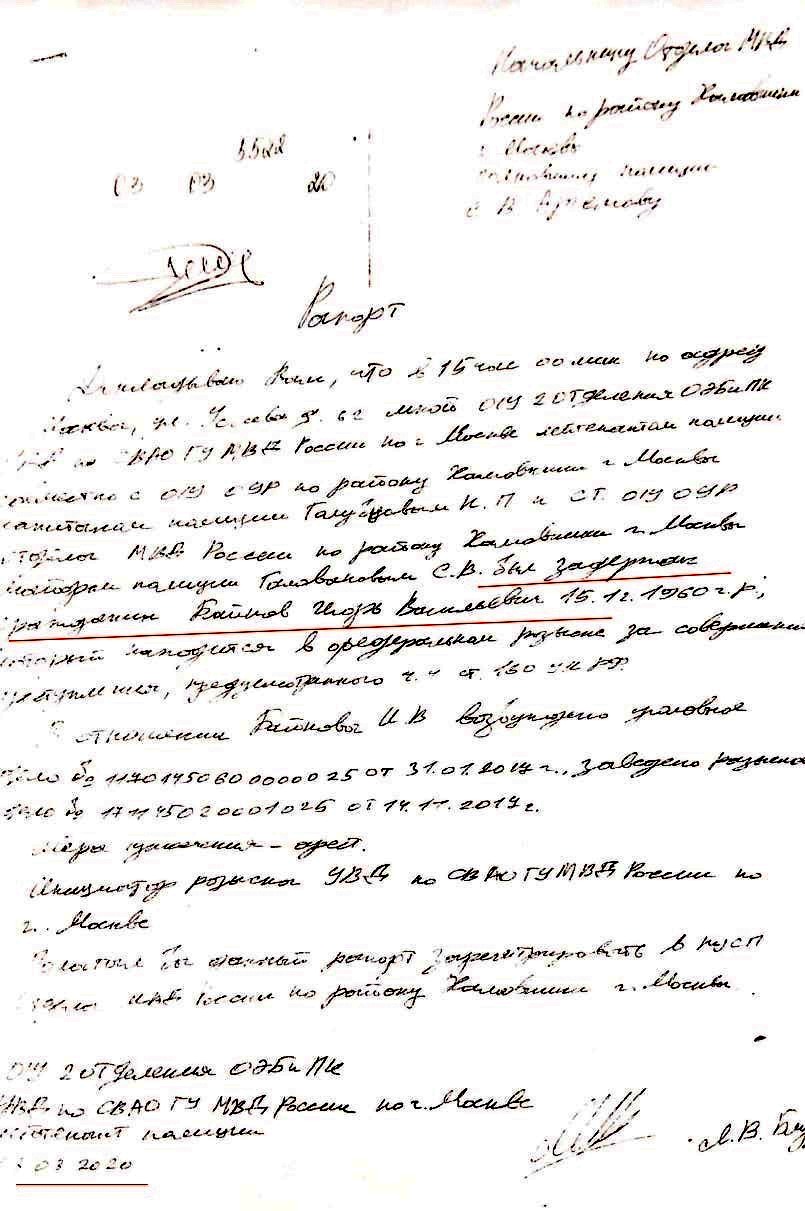 Начальнику Отдела МВД
России по району Хамовники
г. Москвы
полковнику полиции
5522
03 03 20
Рапорт
Докладываю Вам, что в 15 час 00 мин по адресу
Москва, ул. д. 62 мной О/У 2 отделения ОЭБиПК
УВД по СВАО ГУ МВД России по г. Москве лейтенантом полиции
совместно с О/У ОУР по району Хамовники г. Москвы
капитаном полиции Н.П и СТ. О/У ОУР
отдела МВД России по району Хамовники г. Москвы
майором полиции Головановым С.В. был задержан
гражданин Байков Игорь Васильевич 15.12.1960 г.р.,
который находится в федеральном розыске за совершение
преступления, предусмотренного ч. 4 ст. 160 УК РФ.
В отношении Байкова И.В возбуждено уголовное
дело № 11701450600000025 от 31.01.2017 г., заведено розыскное
дело № от 14.11.2017 г.
Мера пресечения - арест.
Инициатор розыска УВД по СВАО ГУ МВД России по
г. Москве
бы данный рапорт зарегистрировать в КУСП
Отдела МВД России по району Хамовники г. Москвы.
О/У 2 отделения ОЭБиПК
УВД по СВАО ГУ МВД России по г. Москве
лейтенант полиции
03 2020
Л.В.